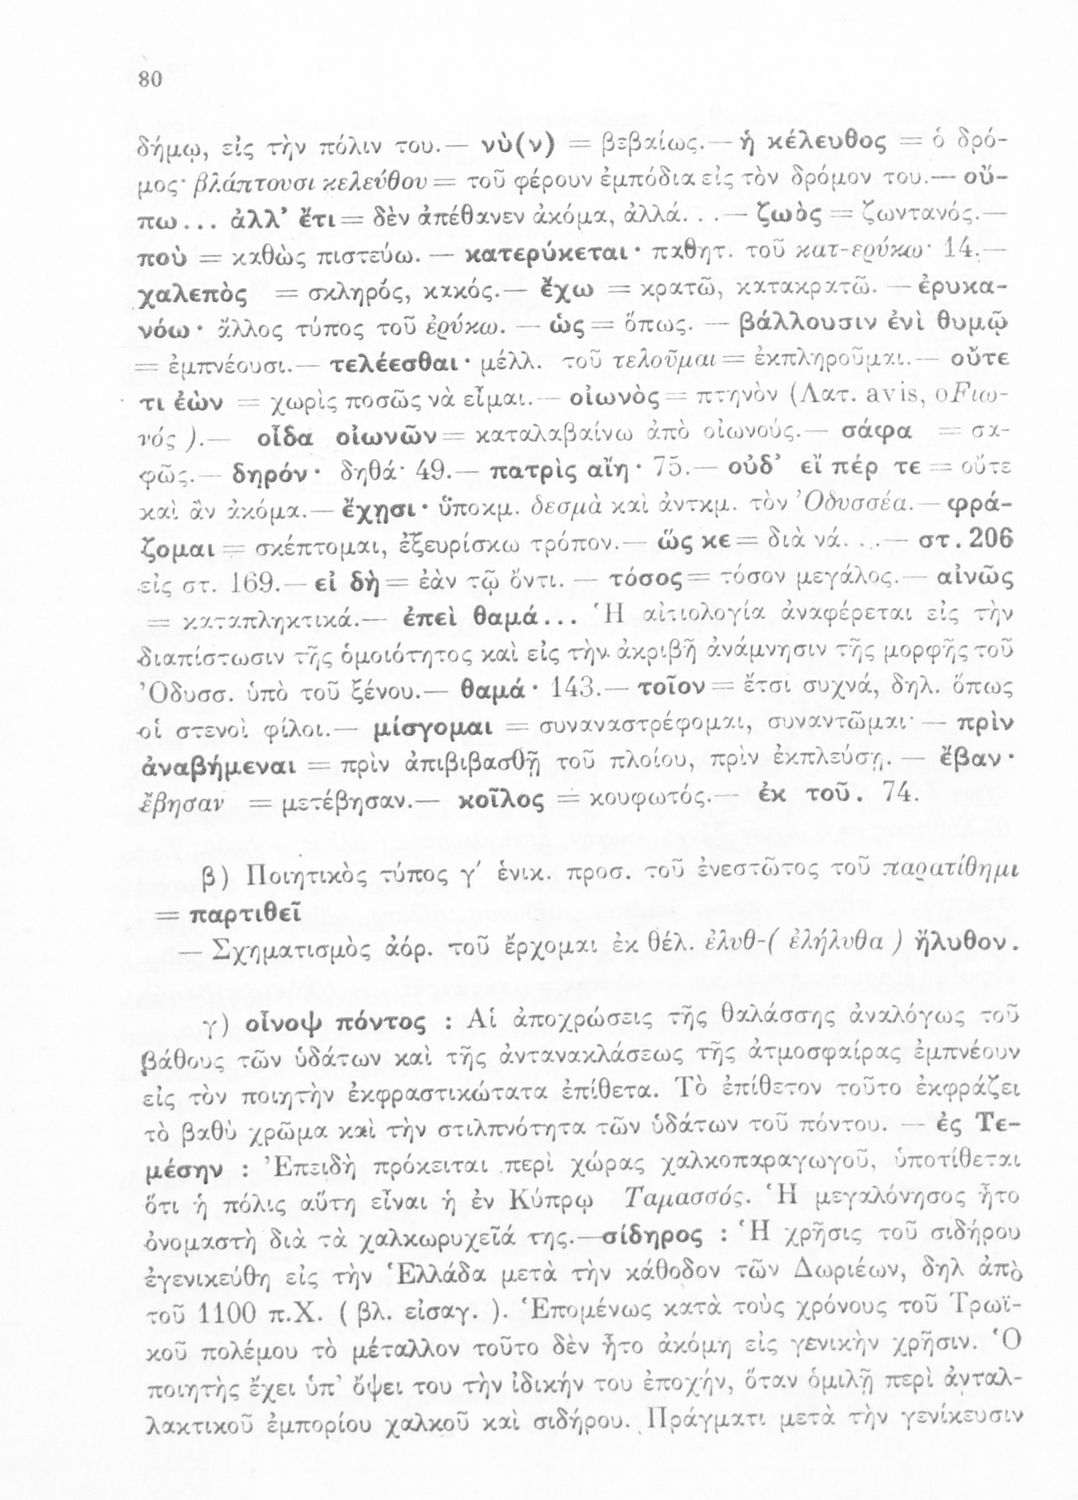 80
δήμῳ, εἰς τὴν πόλιν του.— νὺ(ν) = βεβαίως.— ἡ κέλευθος = ὁ δρό-
μος· βλάπτουσι κελεύθου = τοῦ φέρουν ἐμπόδια εἰς τὸν δρόμον του.— οὔ-
πω... ἀλλ’ ἔτι = δὲν ἀπέθανεν ἀκόμα, ἀλλά. . .— ζωὸς = ζωντανός.—
ποὺ = καθὼς πιστεύω. — κατερύκεται· παθητ. τοῦ κατ-ερύκω· 14.—
χαλεπὸς = σκληρός, κακός.— ἔχω = κρατῶ, κατακρατῶ. — ἐρυκα-
νόω· ἄλλος τύπος τοῦ ἐρύκω. — ὡς = ὅπως. — βάλλουσιν ἐνὶ θυμῷ
= ἐμπνέουσι.— τελέεσθαι· μέλλ. τοῦ τελοῦμαι = ἐκπληροῦμαι.— οὔτε
τι ἐὼν = χωρὶς ποσῶς νὰ εἶμαι.— οἰωνὸς = πτηνὸν (Λατ. avis, οFιω-
νός ).— οἶδα οἰωνῶν = καταλαβαίνω ἀπὸ οἰωνούς.— σάφα = σα-
φῶς.— δηρόν· δηθά· 49.— πατρὶς αἴη· 75.— οὐδ’ εἴ πέρ τε = οὔτε
καὶ ἂν ἀκόμα.— ἔχῃσι· ὑποκμ. δεσμὰ καὶ ἀντκμ. τὸν ’Οδυσσέα.— φρά-
ζομαι = σκέπτομαι, ἐξευρίσκω τρόπον.— ὥς κε = διὰ νά. . .— στ. 206
εἰς στ. 169.— εἰ δὴ = ἐὰν τῷ ὄντι. — τόσος = τόσον μεγάλος.— αἰνῶς
= καταπληκτικά.— ἐπεὶ θαμά... ‘Η αἰτιολογία ἀναφέρεται εἰς τὴν
διαπίστωσιν τῆς ὁμοιότητος καὶ εἰς τὴν ἀκριβῆ ἀνάμνησιν τῆς μορφῆς τοῦ
’Οδυσσ. ὑπὸ τοῦ ξένου.— θαμά· 143.— τοῖον = ἔτσι συχνά, δηλ. ὅπως
οἱ στενοὶ φίλοι.— μίσγομαι = συναναστρέφομαι, συναντῶμαι· — πρὶν
ἀναβήμεναι = πρὶν ἀπιβιβασθῇ τοῦ πλοίου, πρὶν ἐκπλεύσῃ. — ἔβαν·
ἔβησαν = μετέβησαν.— κοῖλος = κουφωτός.— ἐκ τοῦ. 74.
β) Ποιητικὸς τύπος γ′ ἑνικ. προσ. τοῦ ἐνεστῶτος τοῦ παρατίθημι
= παρτιθεῖ
— Σχηματισμὸς ἀόρ. τοῦ ἔρχομαι ἐκ θέλ. ἐλυθ-( ἐλήλυθα ) ἤλυθον.
γ) οἶνοψ πόντος : Αἱ ἀποχρώσεις τῆς θαλάσσης ἀναλόγως τοῦ
βάθους τῶν ὑδάτων καὶ τῆς ἀντανακλάσεως τῆς ἀτμοσφαίρας ἐμπνέουν
εἰς τὸν ποιητὴν ἐκφραστικώτατα ἐπίθετα. Τὸ ἐπίθετον τοῦτο ἐκφράζει
τὸ βαθὺ χρῶμα καὶ τὴν στιλπνότητα τῶν ὑδάτων τοῦ πόντου. — ἐς Τε-
μέσην : ’Επειδὴ πρόκειται περὶ χώρας χαλκοπαραγωγοῦ, ὑποτίθεται
ὅτι ἡ πόλις αὕτη εἶναι ἡ ἐν Κύπρῳ Ταμασσός. ‘Η μεγαλόνησος ἦτο
ὀνομαστὴ διὰ τὰ χαλκωρυχεῖά της.—σίδηρος : ‘Η χρῆσις τοῦ σιδήρου
ἐγενικεύθη εἰς τὴν ‘Ελλάδα μετὰ τὴν κάθοδον τῶν Δωριέων, δηλ ἀπὸ
τοῦ 1100 π.Χ. ( βλ. εἰσαγ. ). ‘Επομένως κατὰ τοὺς χρόνους τοῦ Τρωϊ-
κοῦ πολέμου τὸ μέταλλον τοῦτο δὲν ἦτο ἀκόμη εἰς γενικὴν χρῆσιν. ‘Ο
ποιητὴς ἔχει ὑπ’ ὄψει του τὴν ἰδικήν του ἐποχήν, ὅταν ὁμιλῇ περὶ ἀνταλ-
λακτικοῦ ἐμπορίου χαλκοῦ καὶ σιδήρου. Πράγματι μετὰ τὴν γενίκευσιν